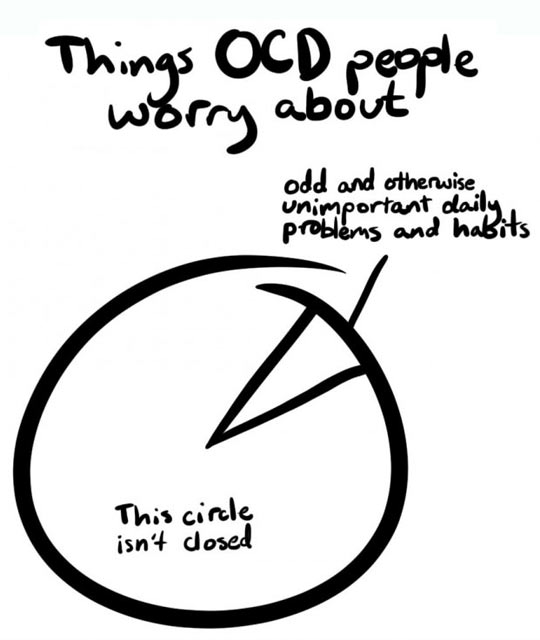 Things OCD people
worry about
odd and otherwise
unimportant daily
problems and habits
This circle
isn't closed